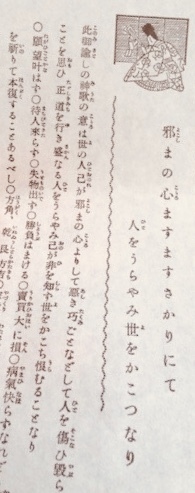 邪まの心ますますさかりにて
人をうらやみ世をかこつなり
此御籤の神歌の意は世の人己が邪まの心よりして悪き巧ごとなどして人を傷ひ毀ら
ことを思ひ、正しき道を行き盛なる人をうらやみ己が非を知ず世をかこち恨むることなり
○願望叶はず○待人来らず○失物出ず○勝負はまける○売買大に損○病気快らずなれど
を祈りて本復することあるべし○方角、乾